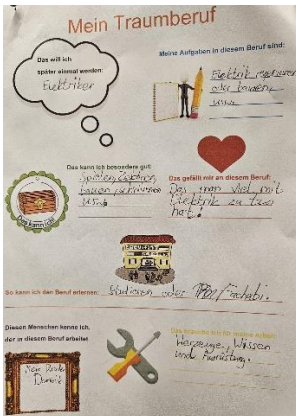 Mein Traumberuf
Das will ich
später einmal werden:
Elektriker
Meine Aufgaben in diesem Beruf sind:
Elektrik reparieren
oder bauen
usw.
Das kann ich besonders gut:
bauen
usw.
Das kann ich!
Das gefällt mir an diesem Beruf:
Das man viel mit
Elektrik zu tun
hat!
So kann ich den Beruf erlernen:
Studieren oder Fachabi.
Diesen Menschen kenne ich,
der in diesem Beruf arbeitet
Mein
Dominik
Das brauche ich für meine Arbeit:
Werzeuge, Wissen
und Ausrüstung.